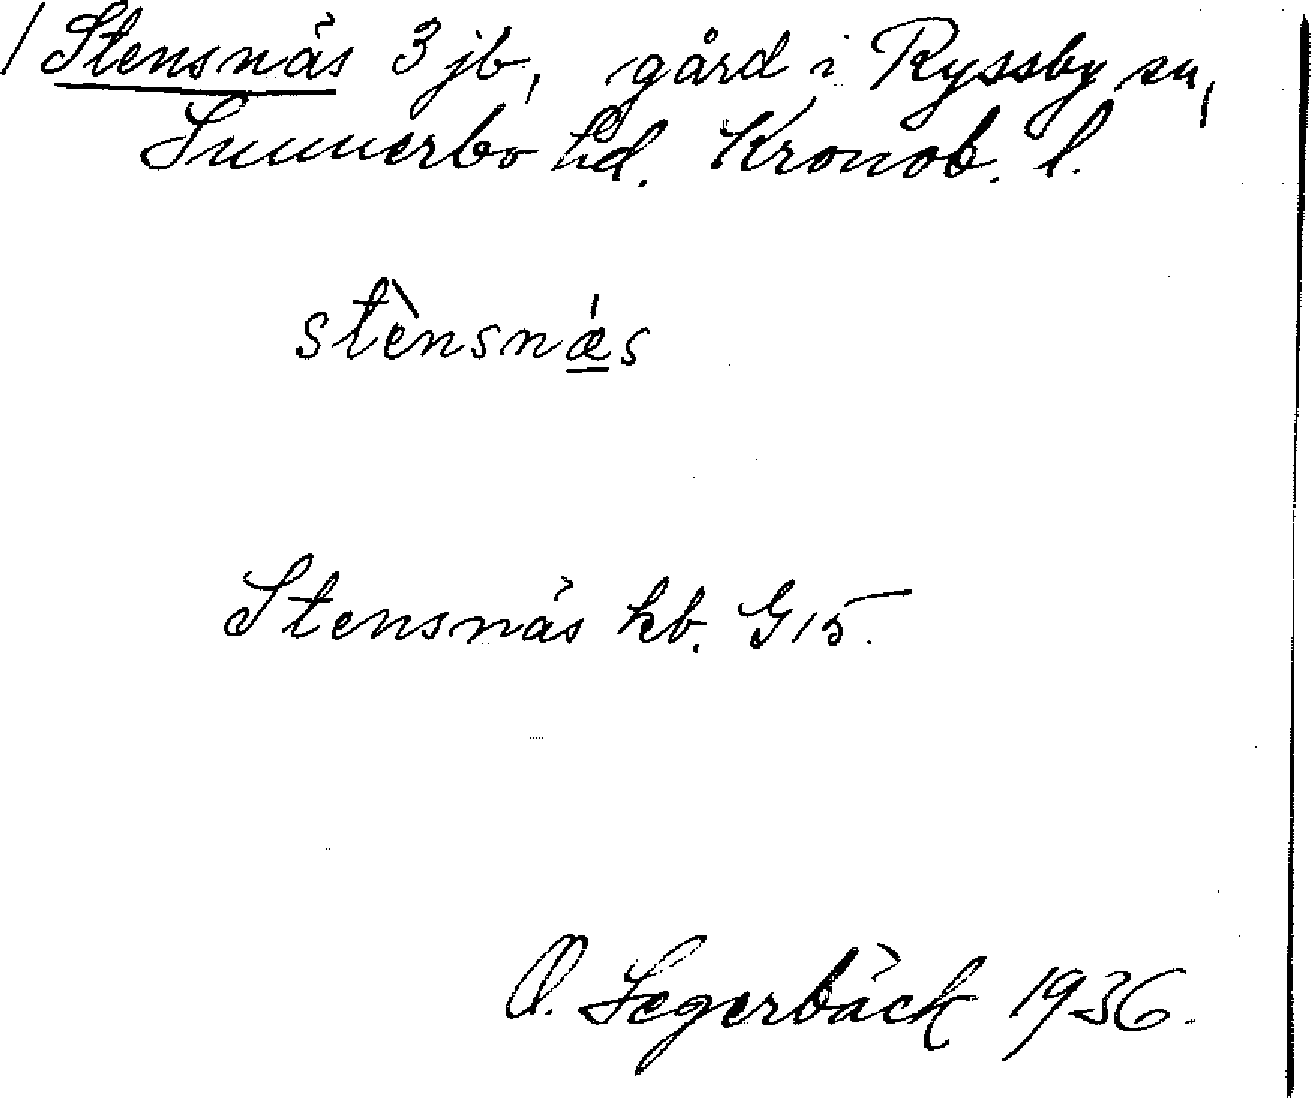 / Stensnäs 3 jb, gård i Ryssby sn,
Sunnerbo hd. Kronob. l.
stènsnǽs
Stensnäs kb. G15.
O. Segerbäck 1936.